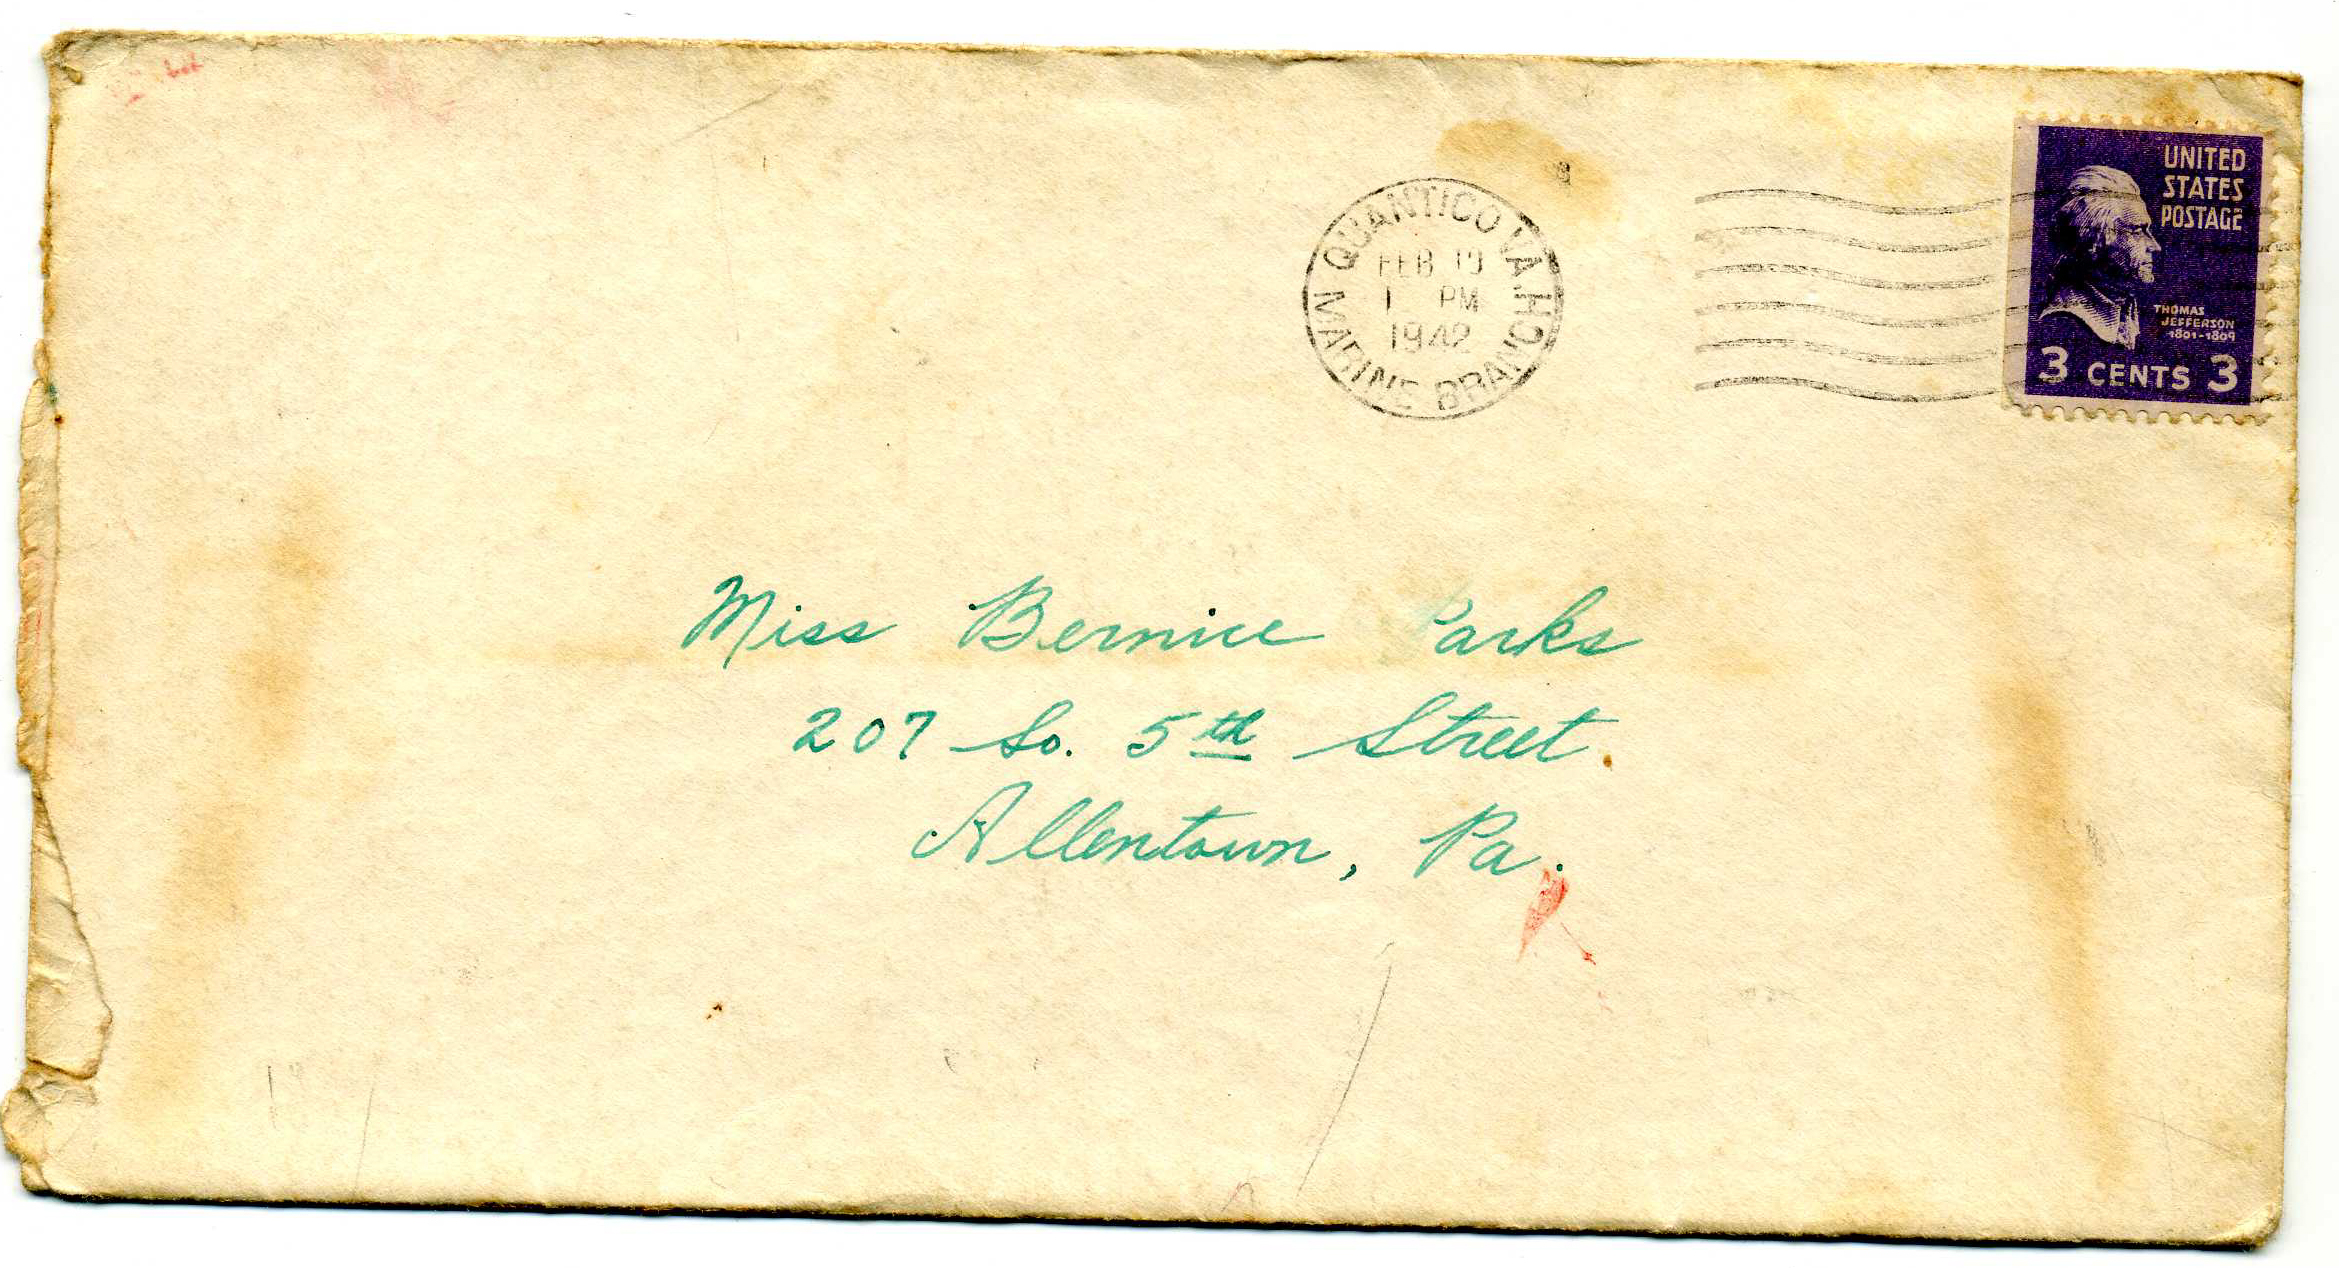 QUANTICO, VA.
FEB 19
1 PM
1942
MARINE BRANCH
UNITED
STATES
POSTAGE
THOMAS
JEFFERSON
1801-1809
3 CENTS 3
Miss Bernice Parks
207 So. 5th Street.
Allentown, Pa.